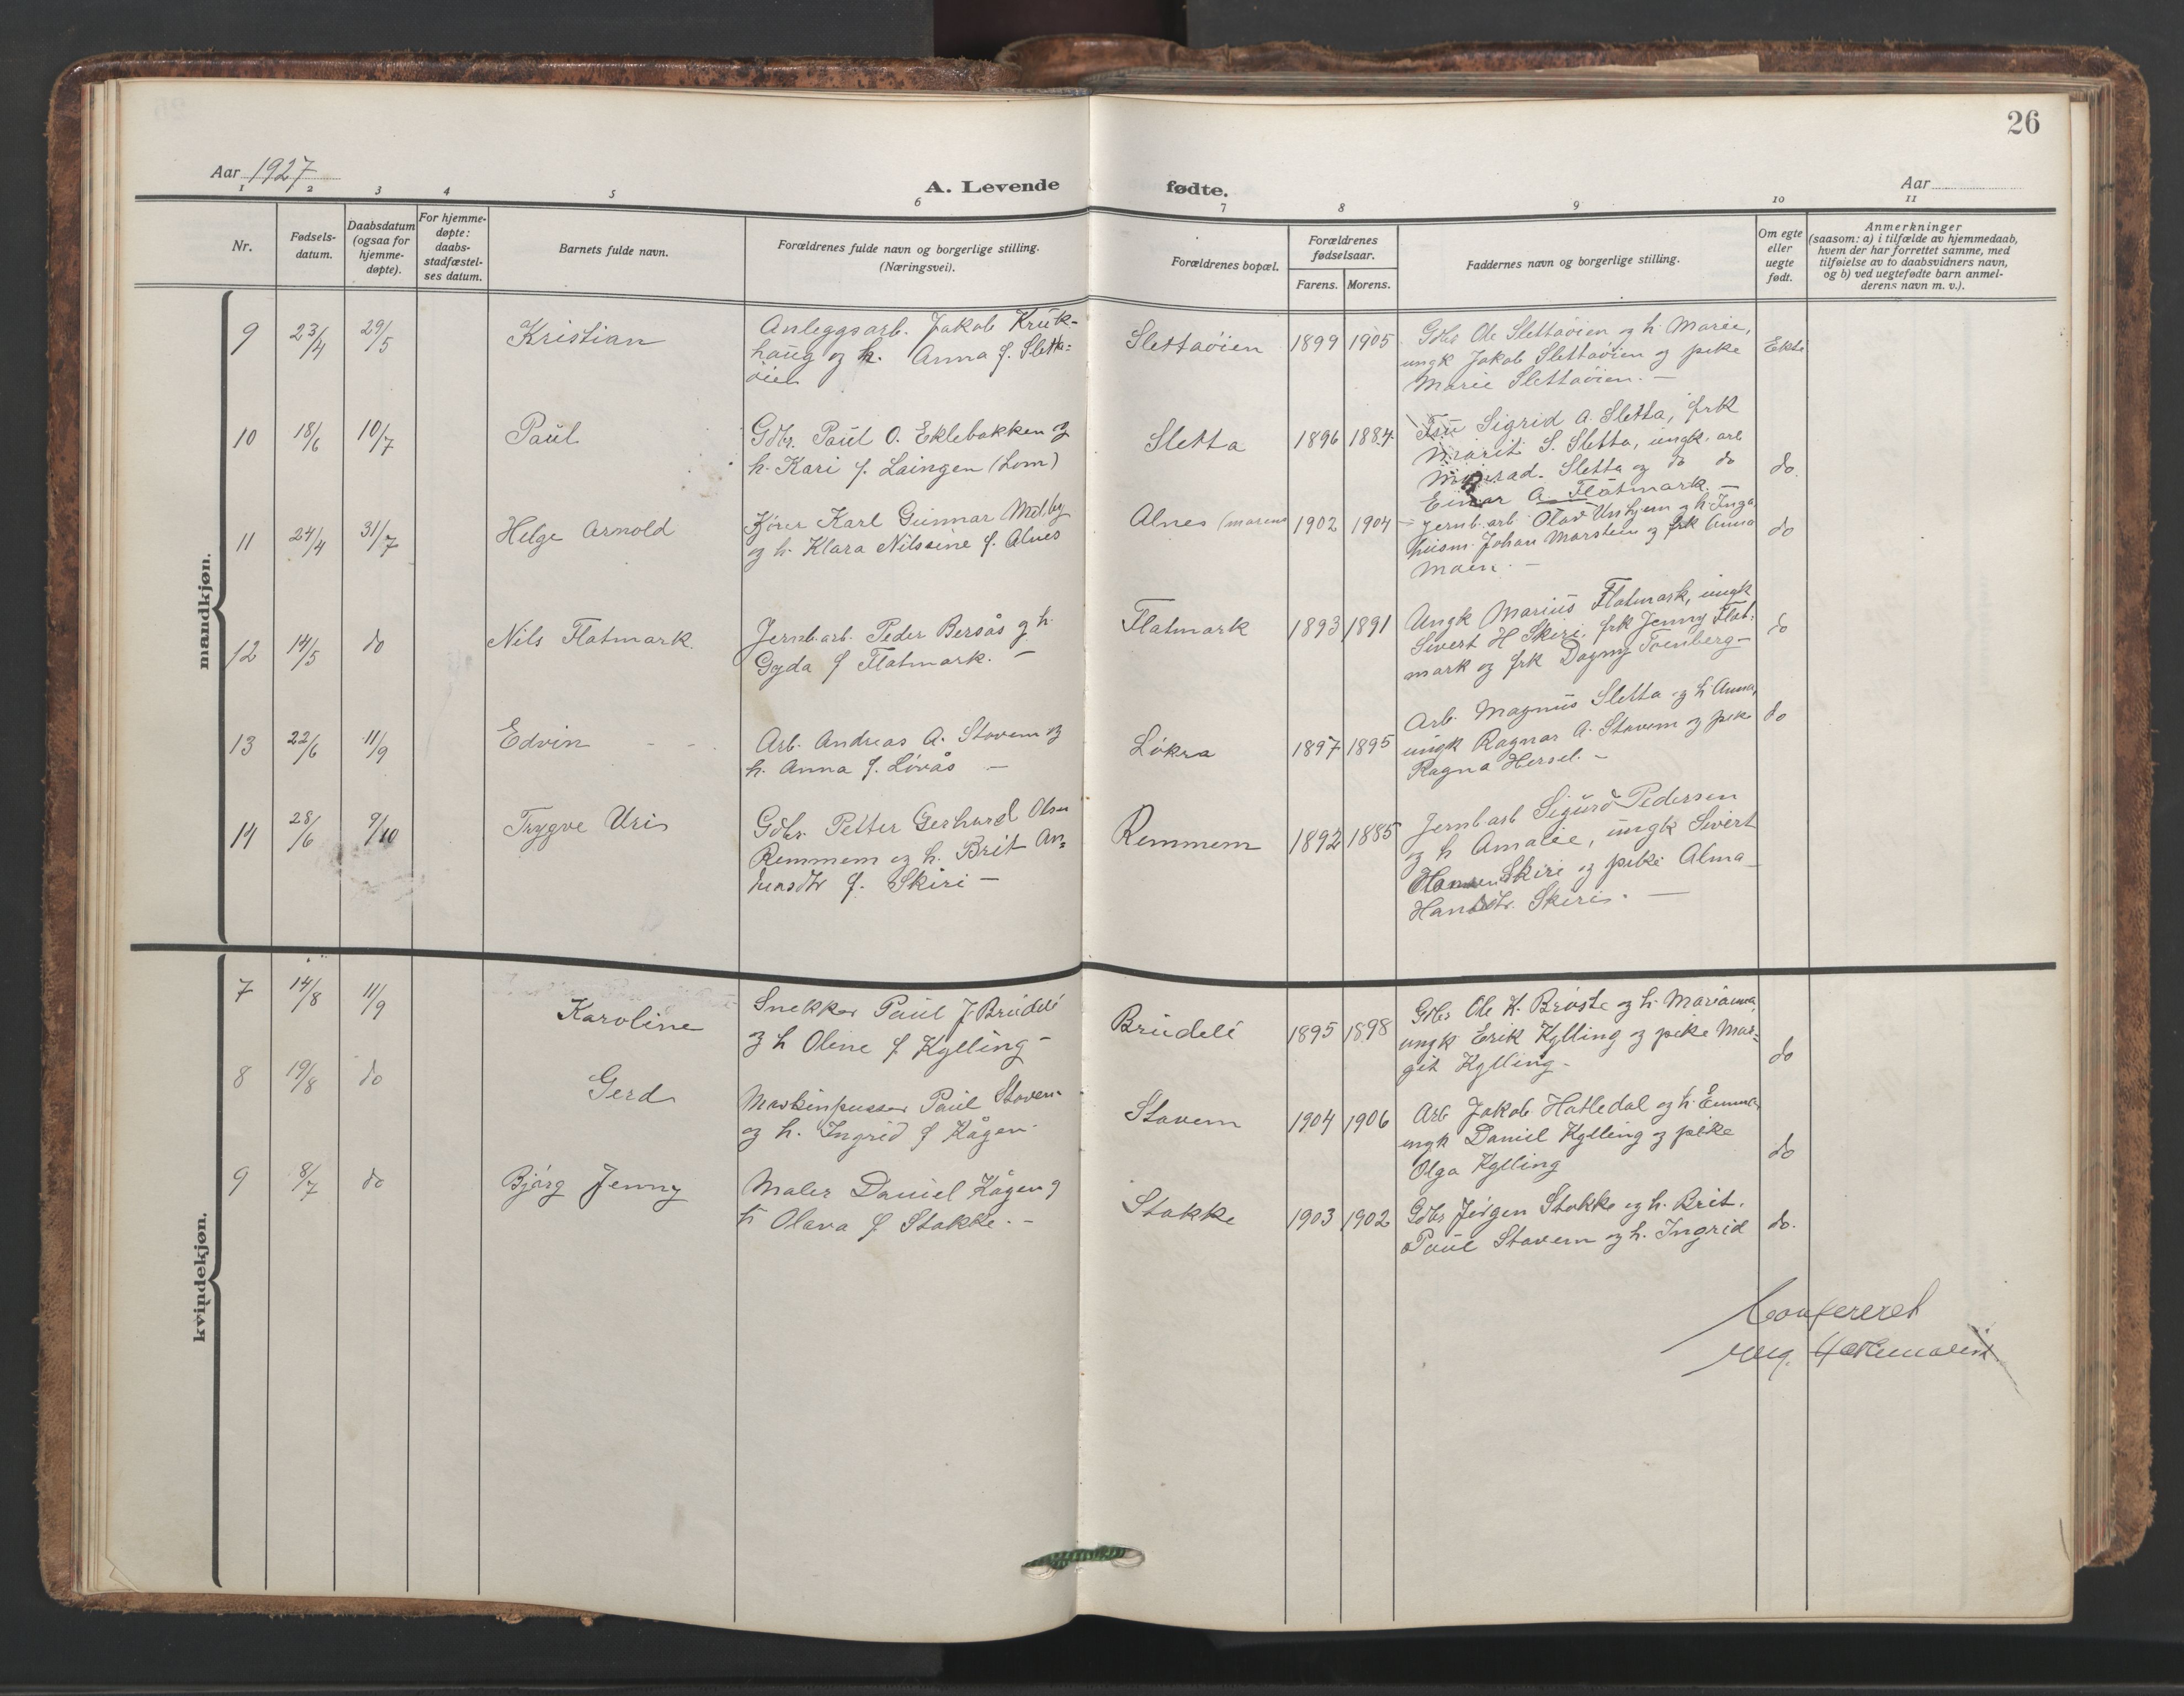 26
Aar 1927
A. Levende fødte.
Aar
1 2 3 4 5 6 7 8 9 10 11
Nr.
Fødsels-
datum.
Daabsdatum
(ogsaa for
hjemme-
døpte).
For hjemme-
døpte:
daabs-
stadfæstel-
ses datum.
Barnets fulde navn.
Forældrenes fulde navn og borgerlige stilling.
(Næringsvei).
Forældrenes bopæl.
Forældrenes
fødselsaar.
Farens. Morens.
Faddernes navn og borgerlige stilling.
Om egte
eller
uegte
født.
Anmerkninger
(saasom: a) i tilfælde av hjemmedaab,
hvem der har forrettet samme, med
tilføielse av to daabsvidners navn,
og b) ved uegtefødte barn anmel-
derens navn m. v.).
mandkjøn.
9 23/4 29/5 Kristian
Anleggsarb. Jakob Kruk-
haug og h. Anna f. Sletta-
øien
Slettaøien 1899 1905
Gdbr Ole Slettaøien og h. Marie,
ungk Jakob Slettaøien og pike
Marie Slettaøien. —
Ekte
10 18/6 10/7 Paul
Gdbr. Paul O. Eklebakken og
h. Kari f. Laingen (Lom)
Sletta 1896 1884.
Fru Sigrid A. Sletta, frk
Marit S. Sletta, ungk. arb
Sletta og do do
Einar A. Flatmark. —
do.
11 24/4 31/7 Helge Arnold
Kjører Karl Gunnar Melby
og h. Klara Nilssine f. Alnes
Alnes (morens 1902 1904
Jernb.arb. Olav Unhjem og h. Inga,
husm. Johan Marstein og frk Anna
Moen. —
do
12 14/5 do Nils Flatmark.
Jernb.arb. Peder Bersås og h.
Gyda f Flatmark. —
Flatmark 1893 1891
Ungk Marius Flatmark, ungk
Sivert H Skiri, frk Jenny Flat-
mark og frk Dagny Toenberg —
do
13 22/6 11/9 Edvin
Arb. Andreas A. Stavem og
h. Anna f. Løvås —
Løkra 1897 1895
Arb. Magnus Sletta og h Anna,
ungk Ragnar A. Stavem og pike
Ragna Hersel. —
do
14 28/6 9/10 Trygve Uri
Gdbr. Petter Gerhard Olsen
Remmem og h. Brit An-
f. Skiri —
Remmem 1892 1885
Jernb arb Sigurd Pedersen
og h Amalie, ungk Sivert
Hansen Skiri og pike Alma
Hansdtr. Skiri. —
kvindekjøn.
7 14/8 11/9 Karoline
Snekker Paul J. Brudeli
og h Oline f Kylling —
Brudeli 1895 1898
Gdbr Ole K. Brøste og h. Marianna,
ungk Erik Kylling og pike Mar-
git Kylling. —
do
8 19/8 do Gerd
Maskinpusser Paul Stavem
og h. Ingrid f Kågen.
Stavem 1904 1906
Arb Jakob Hatledal og h. Emma,
ungk Daniel Kylling og pike
Olga Kylling
do
9 8/7 do Bjørg Jenny
Maler Daniel Kågen og
h Olava f Stokke. —
Stokke 1903 1902
Gdbr Jørgen Stokke og h. Brit.
Paul Stavem og h. Ingrid
do.
Confereret